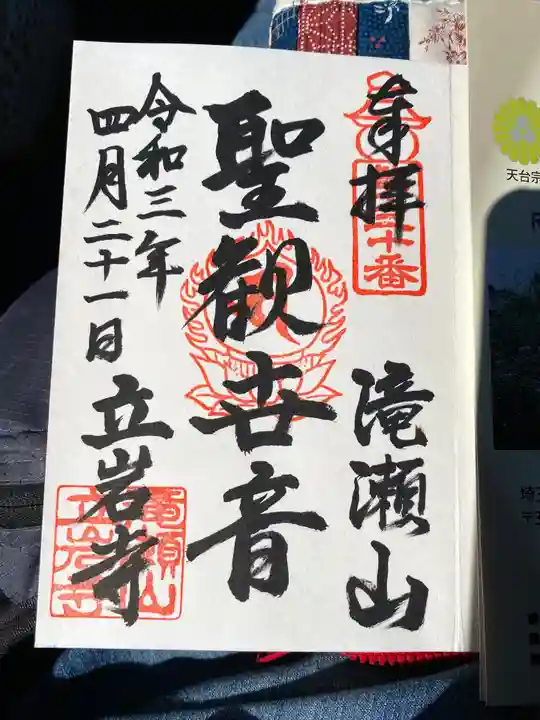 奉拝
十番
滝瀬山
聖観世音
令和三年
四月二十一日
立岩寺
天台宗
埼玉
〒